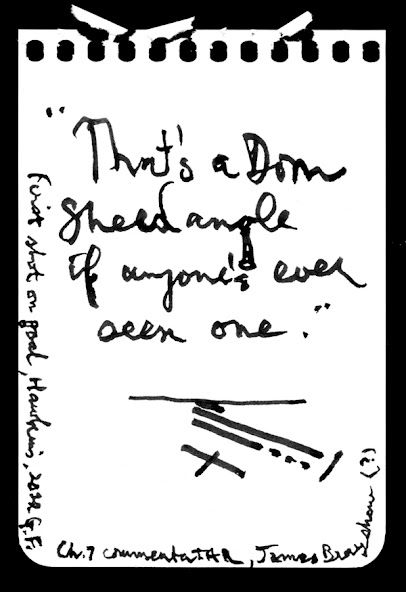 "That's a Dom
Sheed angle
if anyone's ever
seen one."
First shot on goal, Hawkins, 2022 G.F.
Ch. 7 commentatOR, James Brayshaw (?)